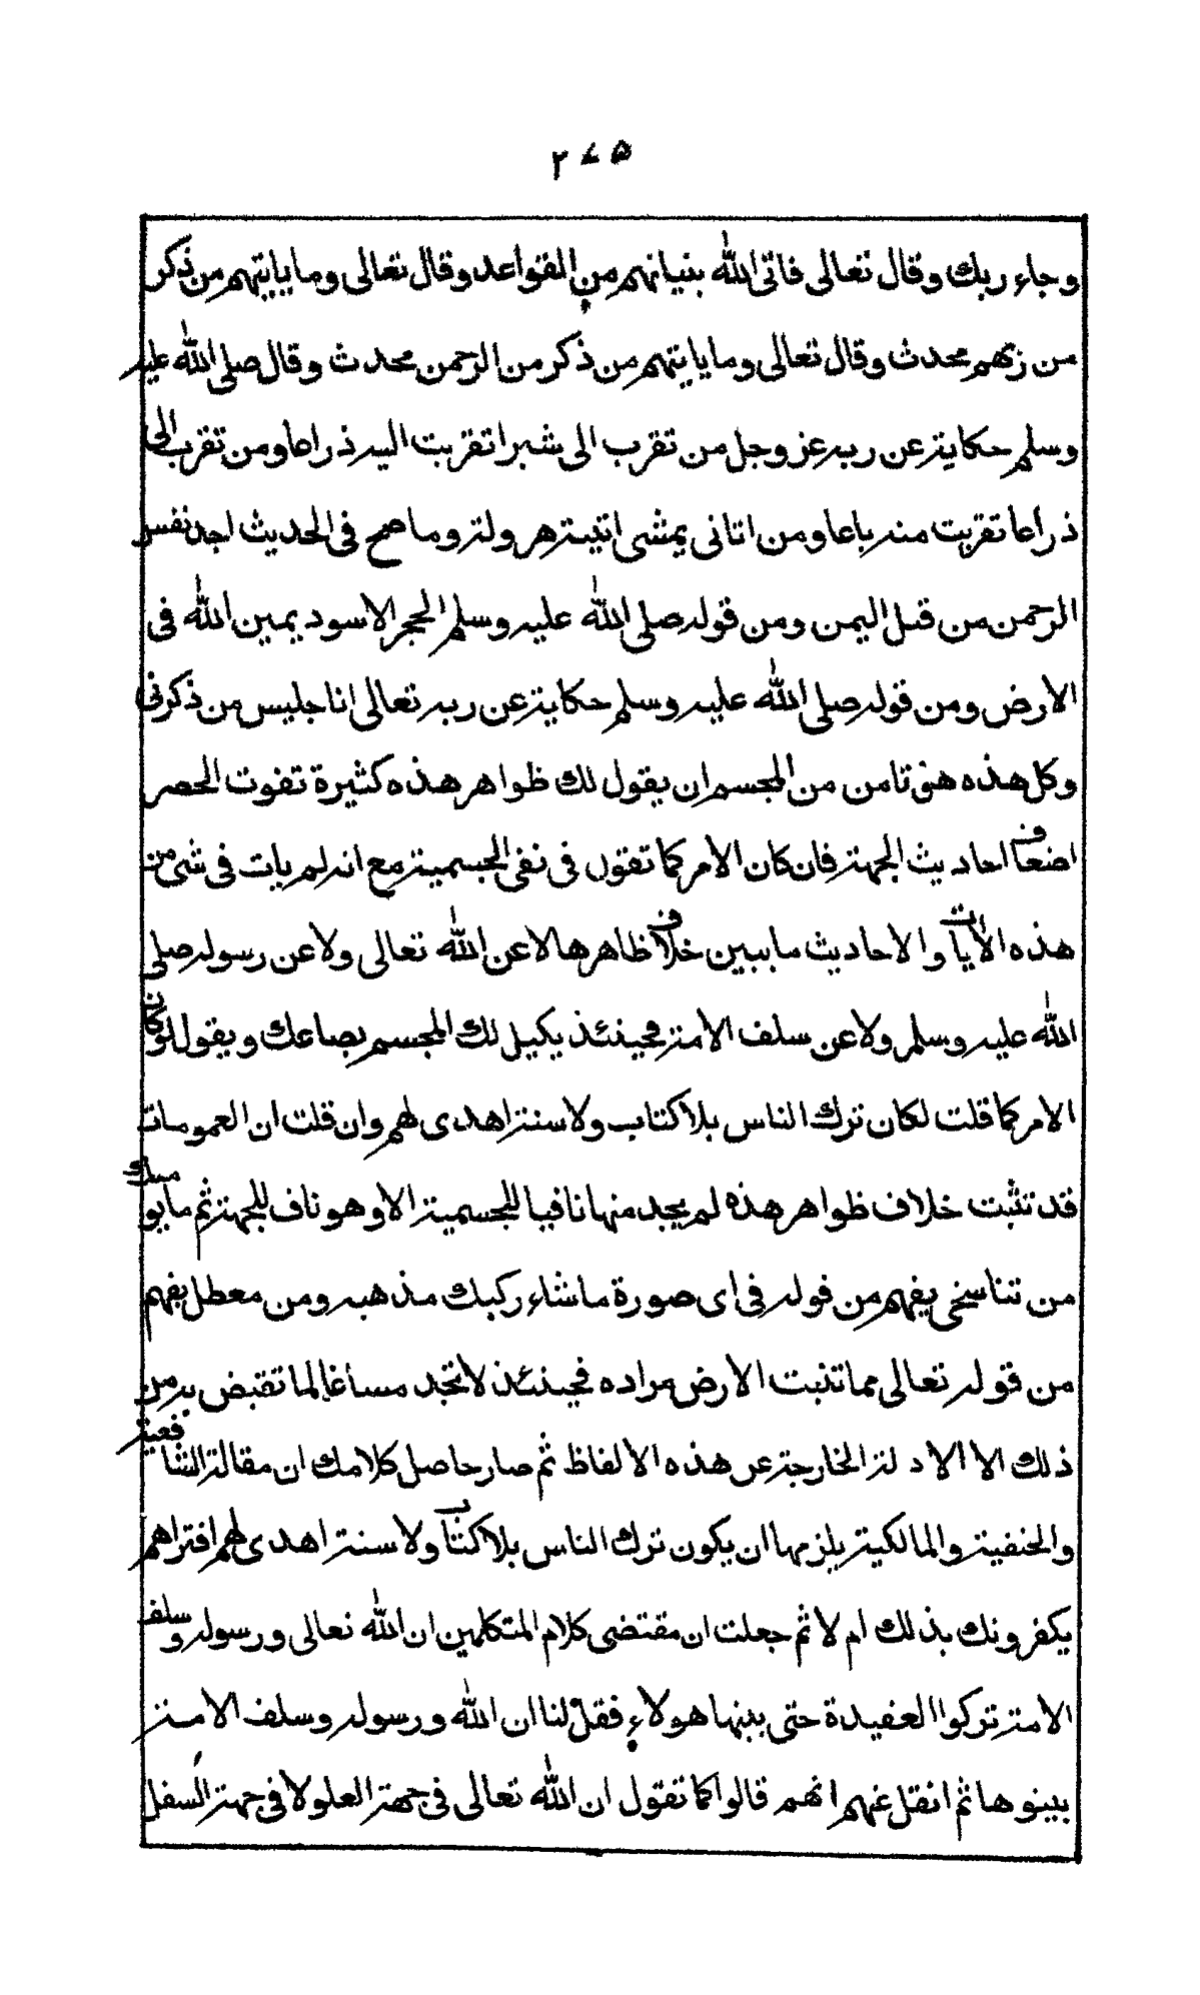 ٢٧٥
وجاء ربك وقال تعالى فاتى الله بنيانهم من القواعد وقال تعالى وما ياتيهم من ذكر
من ربهم محدث وقال تعالى وما ياتيهم من ذكر من الرحمن محدث وقال صلى الله عليه
وسلم حكاية عن ربه عز وجل من تقرب الى شبرا تقربت اليه ذراعا ومن تقرب الى
ذراعا تقربت منه باعا ومن اتانى يمشى اتيته هرولة وما صح فى الحديث اجد نفس
الرحمن من قبل اليمن ومن قوله صلى الله عليه وسلم الحجر الاسود يمين الله فى
الارض ومن قوله صلى الله عليه وسلم حكاية عن ربه تعالى انا جليس من ذكرنى
وكل هذه هنى تامن من المجسم ان يقول لك ظواهر هذه كثيرة تفوت الحصر
اضعاف احاديث الجهة فان كان الامر كما تقول فى نفى الجسمية مع انه لم يات فى شى من
هذه الايات والاحاديث ما يبين خلاف ظاهرها لا عن الله تعالى ولا عن رسوله صلى
الله عليه وسلم ولا عن سلف الامة فحينئذ يكيل لك المجسم بصاعك ويقول لو كان
الامر كما قلت لكان ترك الناس بلا كتاب ولا سنة اهدى لهم وان قلت ان العمومات
قد تثبت خلاف ظواهر هذه لم يجد منها نافيا للجسمية الا وهو ناف للجهة ثم ما يومنك
من تناسخى يفهم من قوله فى اى صورة ما شاء ركبك مذهبه ومن معطل يفهم
من قوله تعالى مما تنبت الارض مراده فحينئذ لا تجد مساغا لما تقبض به من
ذلك الا الادلة الخارجة عن هذه الالفاظ ثم صار حاصل كلامك ان مقالة الشافعية
والحنفية والمالكية يلزمها ان يكون ترك الناس بلا كتاب ولا سنة اهدى لهم افتراهم
يكفرونك بذلك ام لا ثم جعلت ان مقتضى كلام المتكلمين ان الله تعالى ورسوله وسلف
الامة تركوا العقيدة حتى بينها هولاء فقل لنا ان الله ورسوله وسلف الامة
بينوها ثم انقل عنهم انهم قالوا كما تقول ان الله تعالى فى جهة العلو لا فى جهة السفل